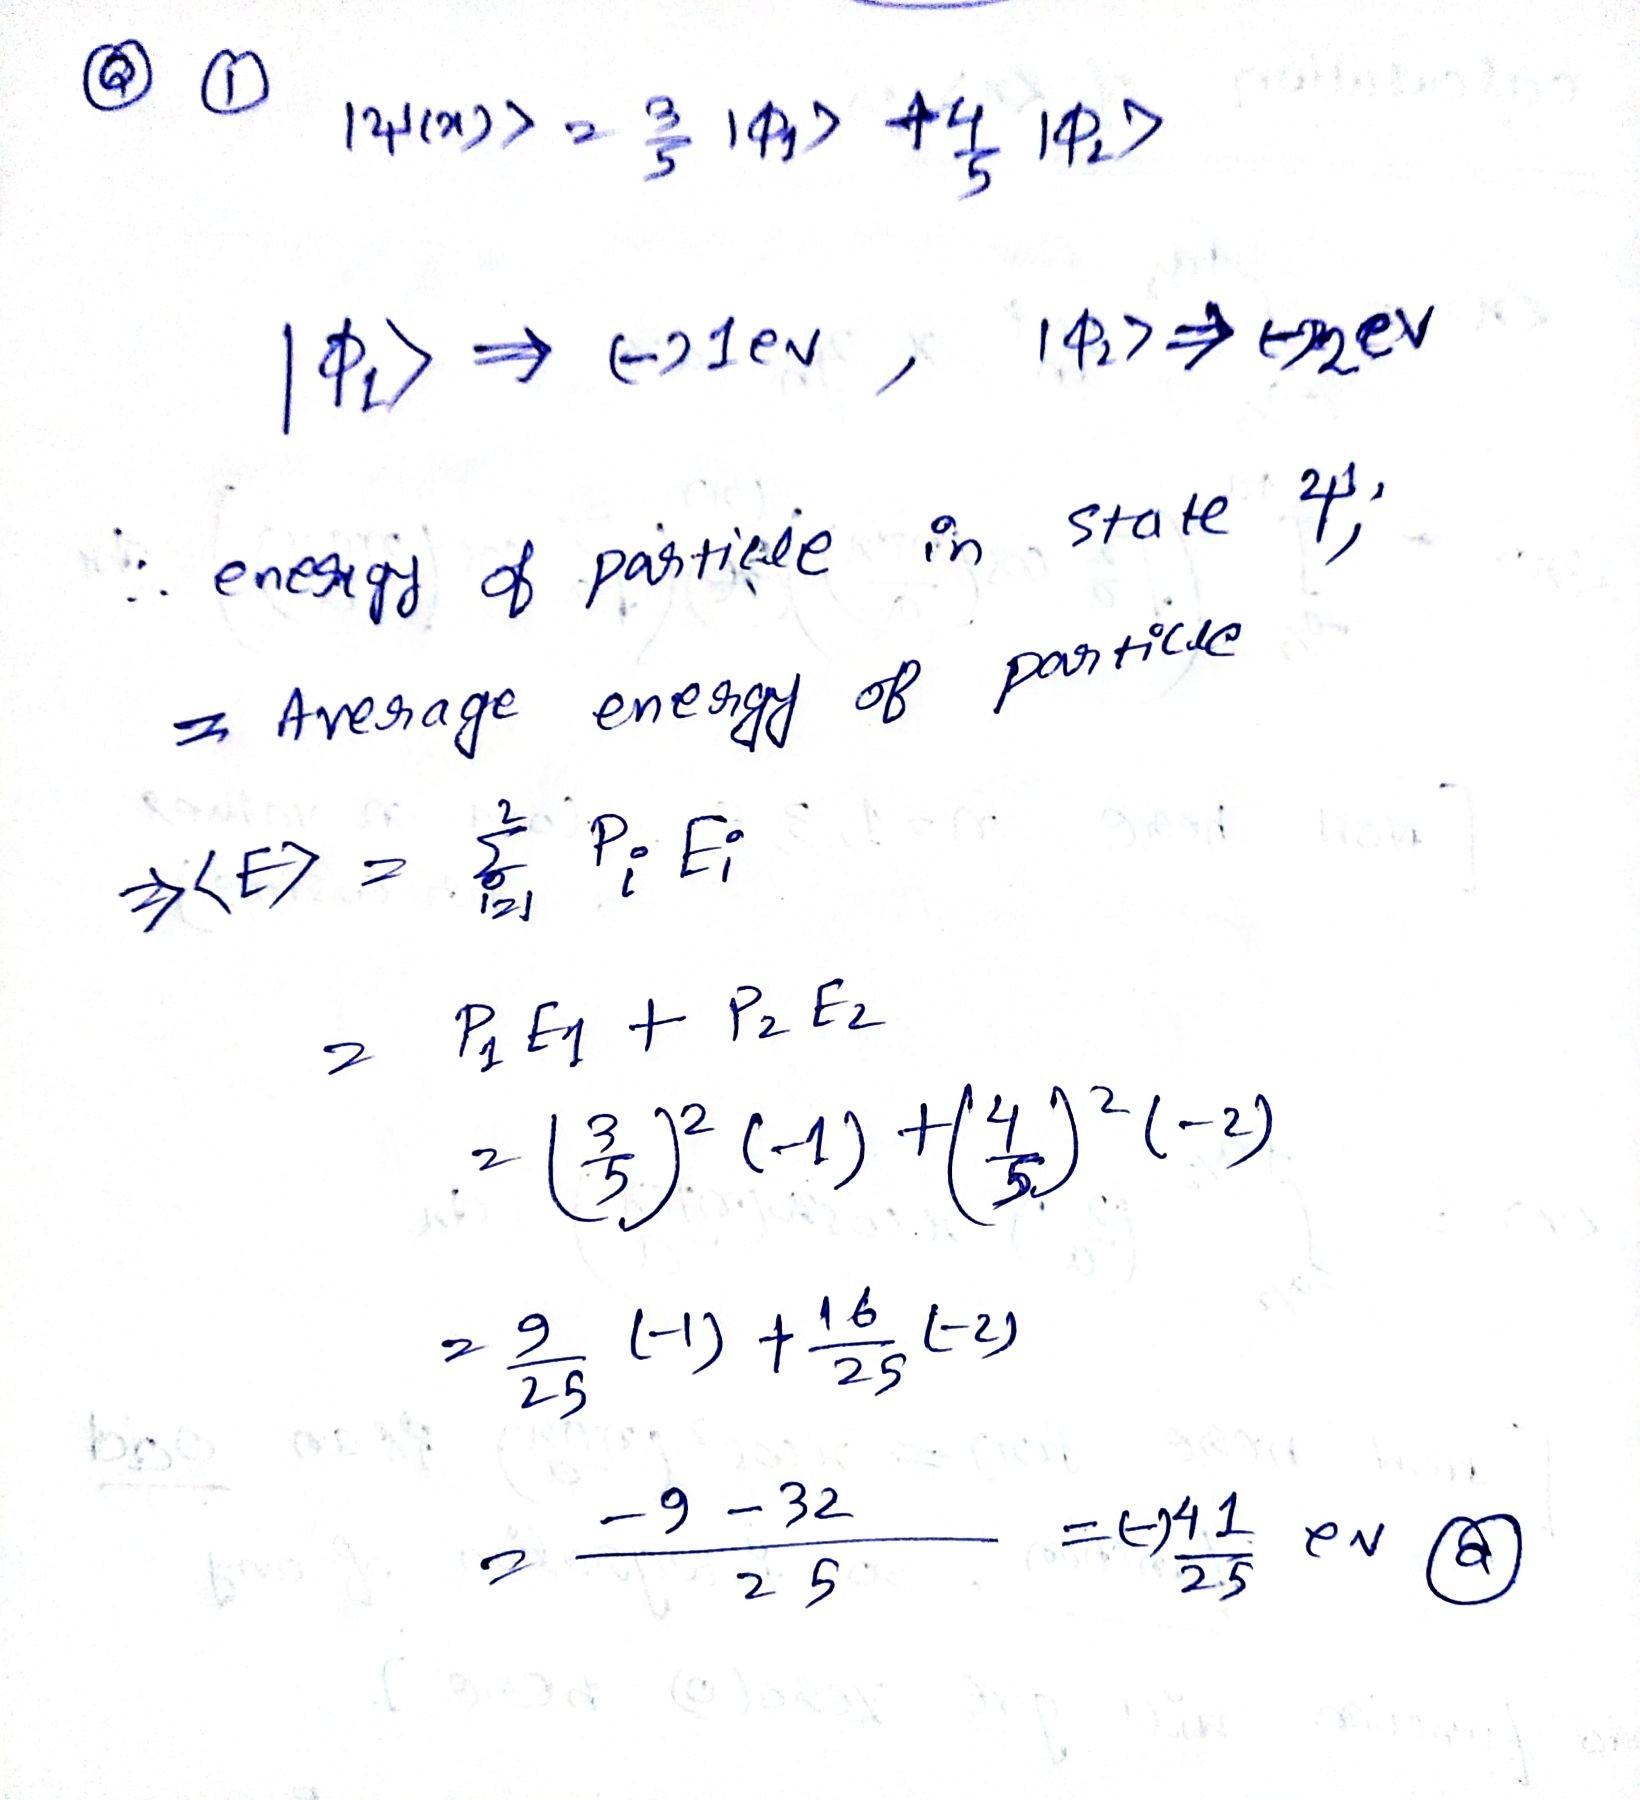 Q ①
|ψ(x)> = 3/5 |ϕ1> + 4/5 |ϕ2>
|ϕ1> ⇒ (-)1ev , |ϕ2> ⇒ (-)2ev
∴ energy of particle in state ψ;
= Average energy of particle
⇒ <E> = Σ_{i=1}^{2} Pi Ei
= P1 E1 + P2 E2
= (3/5)² (-1) + (4/5)² (-2)
= 9/25 (-1) + 16/25 (-2)
= (-9 - 32)/25 = (-)41/25 ev Q